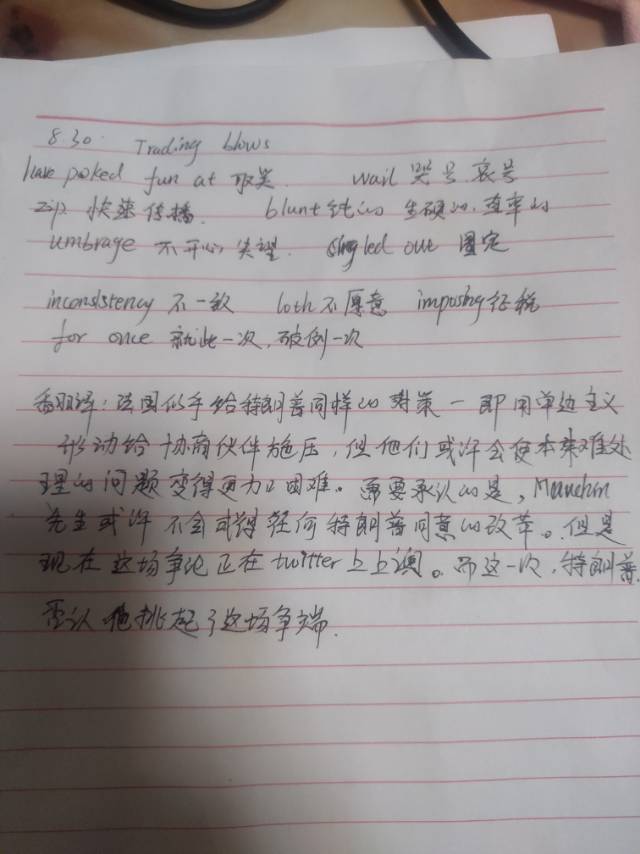 8.30. Trading blows
have poked fun at 取笑 wail 哭号 哀号
zip 快速传播 blunt 钝的 生硬的, 直率的
umbrage 不开心 失望 singled out 固定
inconsistency 不一致 loth 不愿意 imposing 征税
for once 就此一次, 破例一次
翻译: 法国似乎给特朗普同样的对策 — 即用单边主义
形动给协商伙伴施压, 但他们或许会使本来难处
理的问题变得更加困难。需要承认的是, Manchin
先生或许不会或得任何特朗普同意的改革。但是
现在这场争论正在twitter上上演。而这一次, 特朗普
否认他挑起了这场争端.